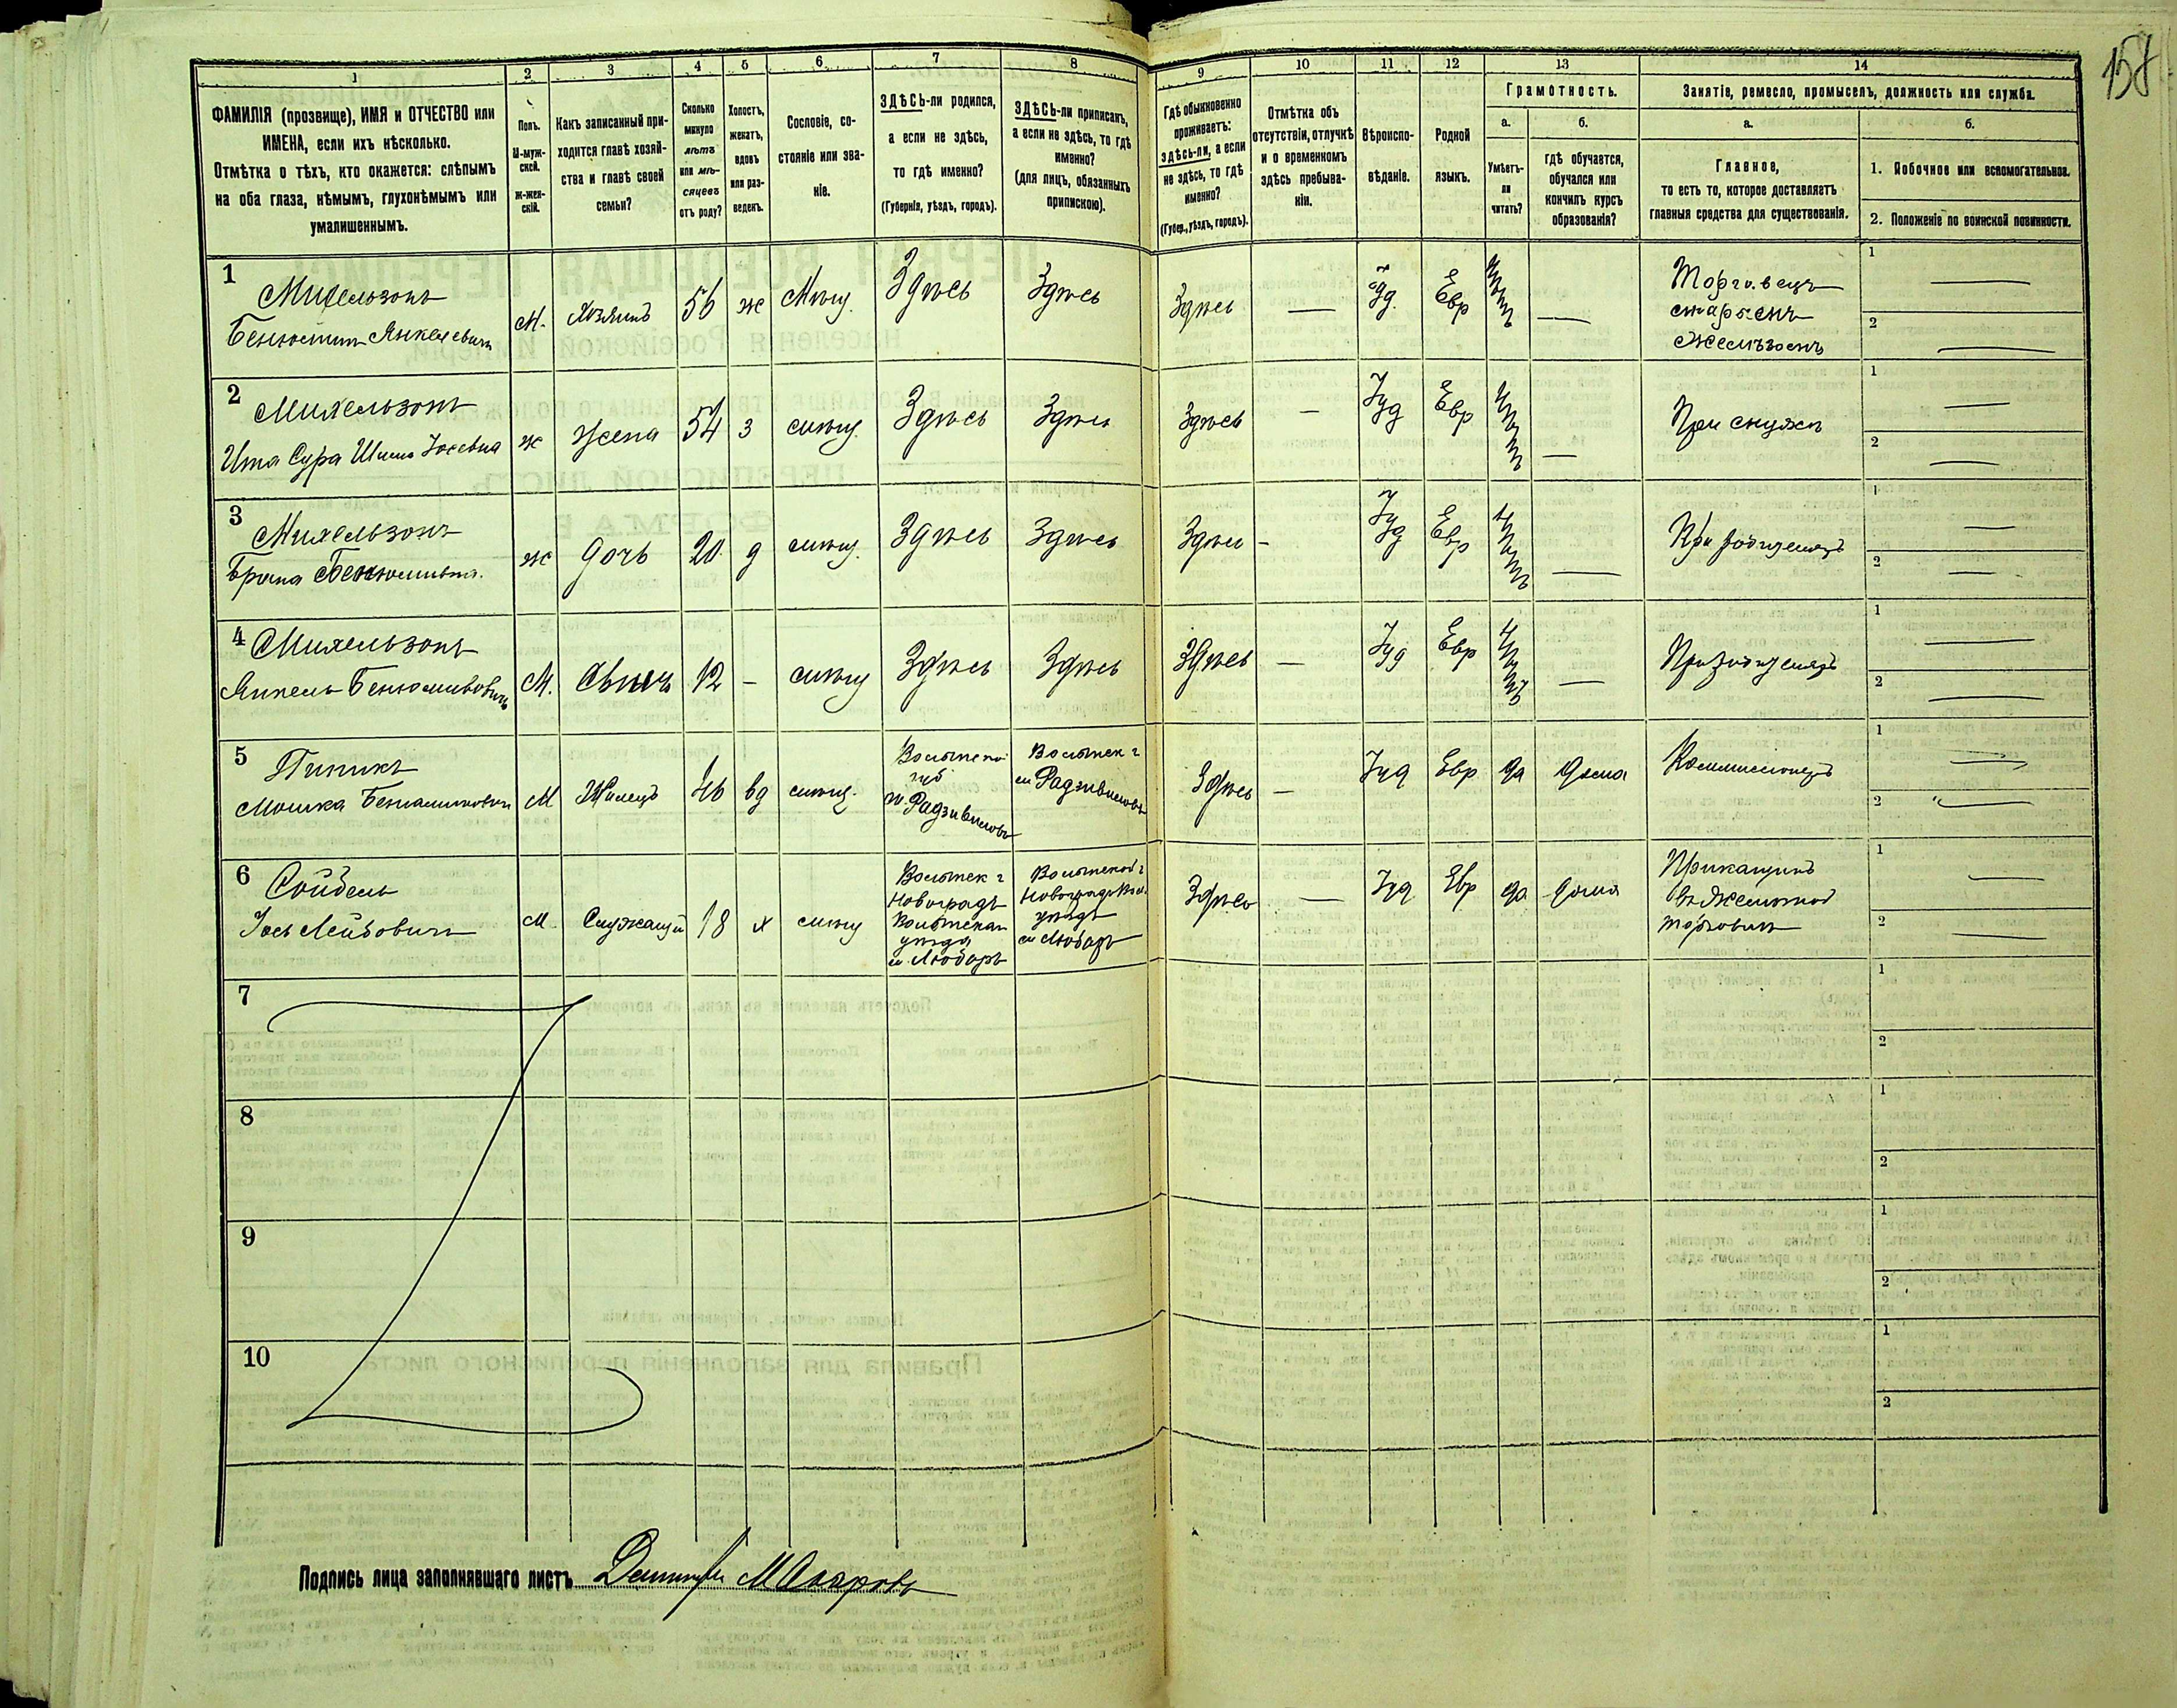 158
1 2 3 4 5 6 7 8 9 10 11 12 13 14
ФАМИЛІЯ (прозвище), ИМЯ и ОТЧЕСТВО или
ИМЕНА, если ихъ нѣсколько.
Отмѣтка о тѣхъ, кто окажется: слѣпымъ
на оба глаза, нѣмымъ, глухонѣмымъ или
умалишеннымъ.
Полъ.
М-муж-
ской.
Ж-жен-
скій.
Какъ записанный при-
ходится главѣ хозяй-
ства и главѣ своей
семьи?
Сколько
минуло
лѣтъ
или мѣ-
сяцевъ
отъ роду?
Холостъ,
женатъ,
вдовъ
или раз-
веденъ.
Сословіе, со-
стояніе или зва-
ніе.
ЗДѢСЬ-ли родился,
а если не здѣсь,
то гдѣ именно?
(Губернія, уѣздъ, городъ).
ЗДѢСЬ-ли приписанъ,
а если не здѣсь, то гдѣ
именно?
(для лицъ, обязанныхъ
припискою).
Гдѣ обыкновенно
проживаетъ:
здѣсь-ли, а если
не здѣсь, то гдѣ
именно?
(Губер., уѣздъ, городъ).
Отмѣтка объ
отсутствіи, отлучкѣ
и о временномъ
здѣсь пребыва-
ніи.
Вѣроиспо-
вѣданіе.
Родной
языкъ.
Грамотность.
а.
Умѣетъ-
ли
читать?
б.
гдѣ обучается,
обучался или
кончилъ курсъ
образованія?
Занятіе, ремесло, промыселъ, должность или служба.
а.
Главное,
то есть то, которое доставляетъ
главныя средства для существованія.
б.
1. Побочное или вспомогательное.
2. Положеніе по воинской повинности.
1 Михельзонъ
Бенюминъ Янкелевичъ
М. Хозяинъ 56 ж Мѣщ. Здѣсь Здѣсь Здѣсь — Іуд. Евр —
Торговецъ
старьемъ
желѣзомъ
1 —
2 —
2 Михельзонъ
Ита Сура
ж жена 54 з мѣщ. Здѣсь Здѣсь Здѣсь — Іуд Евр — При мужѣ
1 —
2 —
3 Михельзонъ
Брана Бенюминовна.
ж дочь 20 д мѣщ. Здѣсь Здѣсь Здѣсь — Іуд Евр — При родителяхъ
1 —
2 —
4 Михельзонъ
Янкель Бенюминовичъ
М. Сынъ 12 — мѣщ Здѣсь Здѣсь Здѣсь — Іуд Евр — При родителяхъ
1 —
2 —
5 Пикикъ
Мошка Беньаминовичъ
М Жилецъ 46 вд мѣщ.
Волынской
губ
м. Радзивиловъ
Волынск г
м Радзивиловъ
Здѣсь — Іуд Евр да дома Коммиссіонеръ
1 —
2 —
6 Сойбель
Іось Лейбовичъ
М Служащій 18 х мѣщ
Волынск г
Новоградъ
Волынскаго
уѣзда
м. Любаръ
Волынской г
Новоградъ Вол.
уѣздъ
м Любаръ
Здѣсь — Іуд Евр да дома
Прикащикъ
въ желѣзной
торговлѣ
1 —
2 —
7
1
2
8
1
2
9
1
2
10
1
2
Подпись лица заполнявшаго листъ Макаровъ